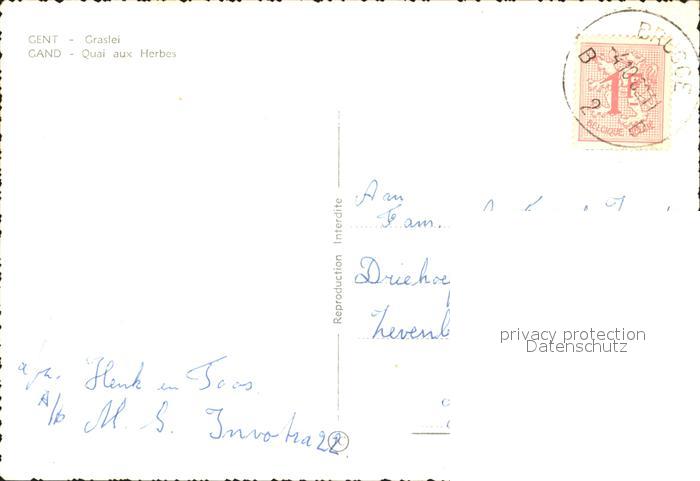 GENT - Graslei
GAND - Quai aux Herbes
BRUGGE
B 2
1F
BELGIQUE
Reproduction Interdite
Aan
Fam.
Driehoe
Zevenb
privacy protection
Datenschutz
Henk en Toos
A/b M.S. Invotra 22